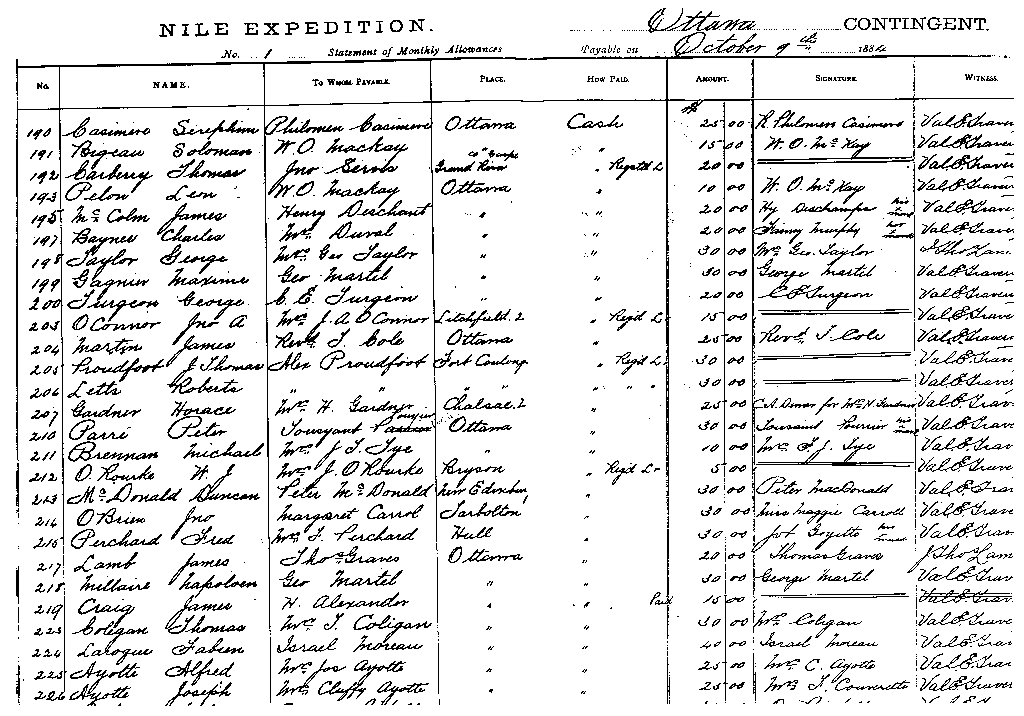 NILE EXPEDITION. Ottawa CONTINGENT.
No. 1 Statement of Monthly Allowances Payable on October 9th 1884
No. NAME. TO WHOM PAYABLE. PLACE. HOW PAID. AMOUNT. SIGNATURE. WITNESS.
190 Casimero Seraphim Philomen Casimere Ottawa Cash 25 00 R Philomen Casimero Val E Graver
191 Bigeau Soloman W O Mackay " " 15 00 W. O. Mc Kay Val E Graver
192 Carberry Thomas Jno Servis Grand River " Registd L 20 00 Val E Graver
193 Pelon Leon W O Mackay Ottawa " 10 00 W. O. Mc Kay Val E Graver
195 Mc Colm James Henry Deschant " " 20 00 Hy Deschamps his mark Val E Graver
197 Baynes Charles Mrs Duval " " 20 00 Fanny Murphy her mark Val E Graver
198 Taylor George Mrs Geo Taylor " " 30 00 Mrs Geo. Taylor J Tho Lam
199 Gagnier Maxime Geo Martel " " 30 00 George Martel Val E Graver
200 Turgeon George C. E. Turgeon " " 20 00 C E Turgeon Val E Graver
203 O Connor Jno A Mrs J. A O Connor Litchfield. 2 " Regd L 15 00 Val E Graver
204 Martin James Revd T. Cole Ottawa " 25 00 Revd T Cole Val E Graver
205 Proudfoot J Thomas Alex Proudfoot Fort Coulonge " Regd L 30 00 Val E Graver
206 Letts Roberts " " " " " " " 30 00 Val E Grave
207 Gardner Horace Mrs H. Gardner Chalsae. 2 " 25 00 C A Dewar for Mrs H. Gardner Val E Grave
210 Parré Peter Tousyant Ottawa " 30 00 Toussaint Fourrier his mark Val E Grave
211 Brennan Michael Mrs J T Tye " " 10 00 Mrs T. J. Tye Val E Grave
212 O. Rourke W. J Mrs J. O Rourke Bryson " Regd Lr 5 00 Val E Grave
213 Mc Donald Duncan Peter Mc Donald New Edinbur, " 30 00 Peter MacDonald Val E Gra
214 O'Brien Jno Margaret Carrol Tarbolton " 30 00 Miss Maggie Carroll Val E Gra
215 Perchard Fred Mrs T. Perchard Hull " 30 00 Jos Goyette his mark Val E Gra
217 Lamb James Thos Graves Ottawa " 20 00 Thomas Grave J Tho Lam
218 Millaire Napoleon Geo Martel " " 30 00 George Martel Val E Grav
219 Craig James H. Alexander " " Paid 15 00 Val E Grav
223 Coligan Thomas Mrs T. Coligan " " 30 00 Mrs Coligan Val E Grav
224 Laroque Fabien Israel Moreau " " 40 00 Israel Moreau Val E Gra
225 Ayotte Alfred Mrs Jos Ayotte " " 25 00 Mrs C. Ayotte Val E Gra
226 Ayotte Joseph Mrs Cleffy Ayotte " " 25 00 Mrs T. Couverette Val E Grav